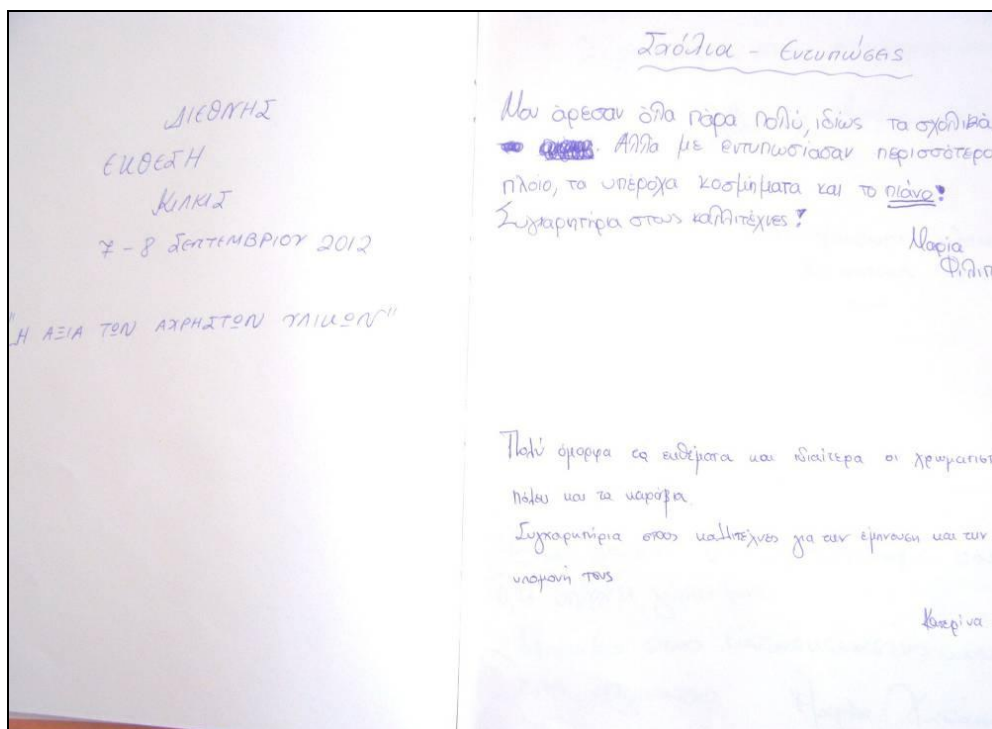 ΔΙΕΘΝΗΣ
ΕΚΘΕΣΗ
ΚΙΛΚΙΣ
7-8 ΣΕΠΤΕΜΒΡΙΟΥ 2012
"Η ΑΞΙΑ ΤΩΝ ΑΧΡΗΣΤΩΝ ΥΛΙΚΩΝ"
Σχόλια - Εντυπώσεις
Μου άρεσαν όλα πάρα πολύ, ιδίως τα σχολικά
. Αλλά με εντυπωσίασαν περισσότερο
πλοίο, τα υπέροχα κοσμήματα και το πιάνο!
Συγχαρητήρια στους καλλιτέχνες!
Μαρία
Φιλιπ
Πολύ όμορφα τα εκθέματα και ιδιαίτερα οι χρωματιστ
πύλες και τα καράβια.
Συγχαρητήρια στους καλλιτέχνες για την έμπνευση και την
υπομονή τους
Κατερίνα